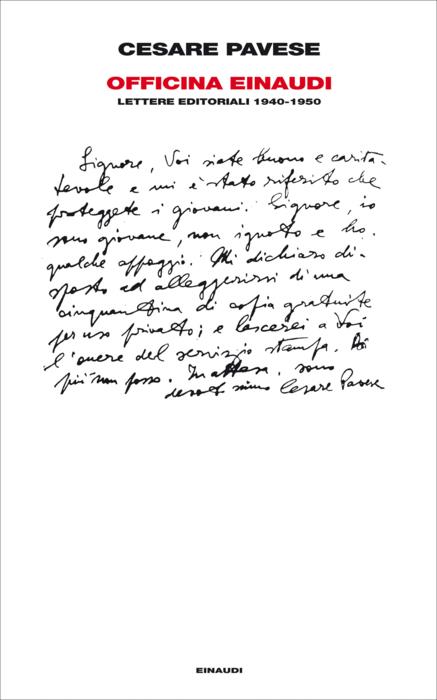 CESARE PAVESE
OFFICINA EINAUDI
LETTERE EDITORIALI 1940-1950
Signore, Voi siete buono e carita-
tevole e mi è stato riferito che
proteggete i giovani. Signore, io
sono giovane, non ignoto e ho
qualche appoggio. Mi dichiaro di-
sposto ad alleggerirvi di una
cinquantina di copie gratuite
per uso privato; e lascerei a Voi
l'onere del servizio stampa. Di
più non posso. In attesa, sono
devotissimo Cesare Pavese
EINAUDI